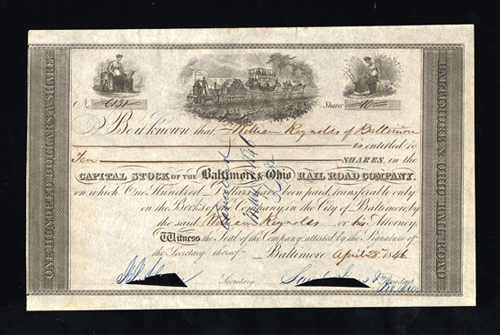 No. 6131 Shares 10
Be it known that William Reynolds of Baltimore
is entitled to
Ten SHARES, in the
CAPITAL STOCK OF THE Baltimore & Ohio RAIL ROAD COMPANY,
on which One Hundred Dollars has been paid, transferable only
on the Books of the Company, in the City of Baltimore, by
the said William Reynolds or his Attorney.
Witness the Seal of the Company, attested by the Signature of
the Secretary thereof. Baltimore April 8 1846
Secretary President
ONE HUNDRED DOLLARS A SHARE
BALTIMORE & OHIO RAIL ROAD